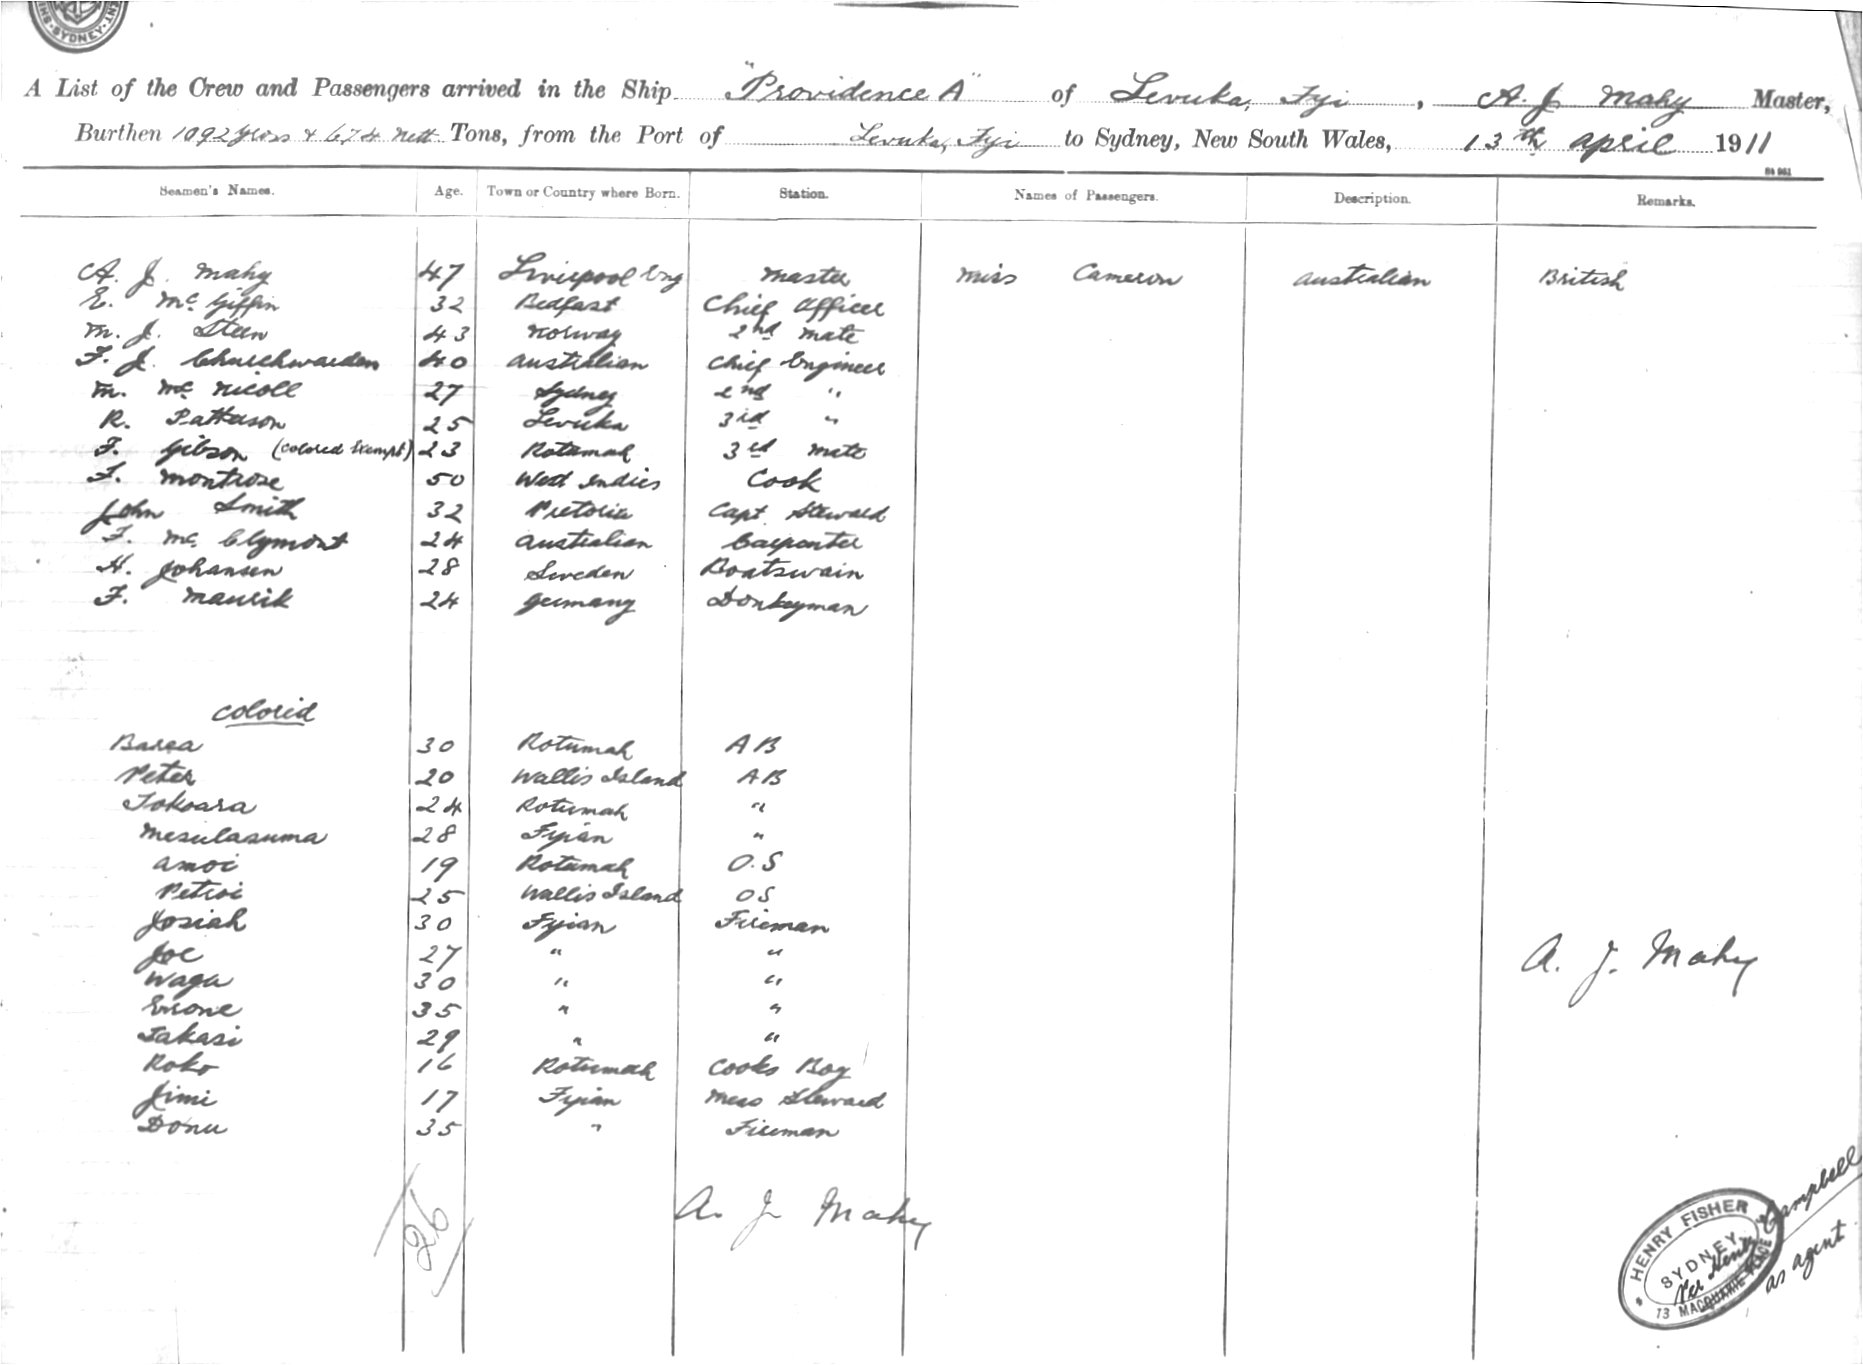 SYDNEY
A List of the Crew and Passengers arrived in the Ship "Providence A" of Levuka, Fyi, A. J. Mahy Master,
Burthen 1092 gross & 674 nett Tons, from the Port of Levuka, Fyi to Sydney, New South Wales, 13th April 1911
Seamen's Names. Age. Town or Country where Born. Station. Names of Passengers. Description. Remarks.
A. J. Mahy 47 Liverpool Eng Master Miss Cameron Australian British
E. McGiffin 32 Belfast Chief Officer
M. J. Steen 43 Norway 2nd Mate
F. J. Churchwarden 40 Australian Chief Engineer
M. McNicoll 27 Sydney 2nd "
R. Patterson 25 Levuka 3rd "
F. Gibson (Colored Exempt) 23 Rotumah 3rd Mate
F. Montrose 50 West Indies Cook
John Smith 32 Pretoria Capt. Steward
F. Mc Clymont 24 Australian Carpenter
H. Johansen 28 Sweden Boatswain
F. Maurik 24 Germany Donkeyman
Colored
Barea 30 Rotumah AB
Peter 20 Wallis Island AB
Tokoara 24 Rotumah "
Mesulasuma 28 Fyian "
Amoi 19 Rotumah O.S
Petroi 25 Wallis Island OS
Josiah 30 Fyian Fireman
Joe 27 " "
Waqa 30 " "
Erone 35 " "
Takasi 29 " "
Roko 16 Rotumah Cooks Boy
Jimi 17 Fyian Mess Steward
Donu 35 " Fireman
A. J. Mahy
26
A. J. Mahy
HENRY FISHER
SYDNEY
73 MACQUARIE PLACE
Per Henry Campbell
as agent